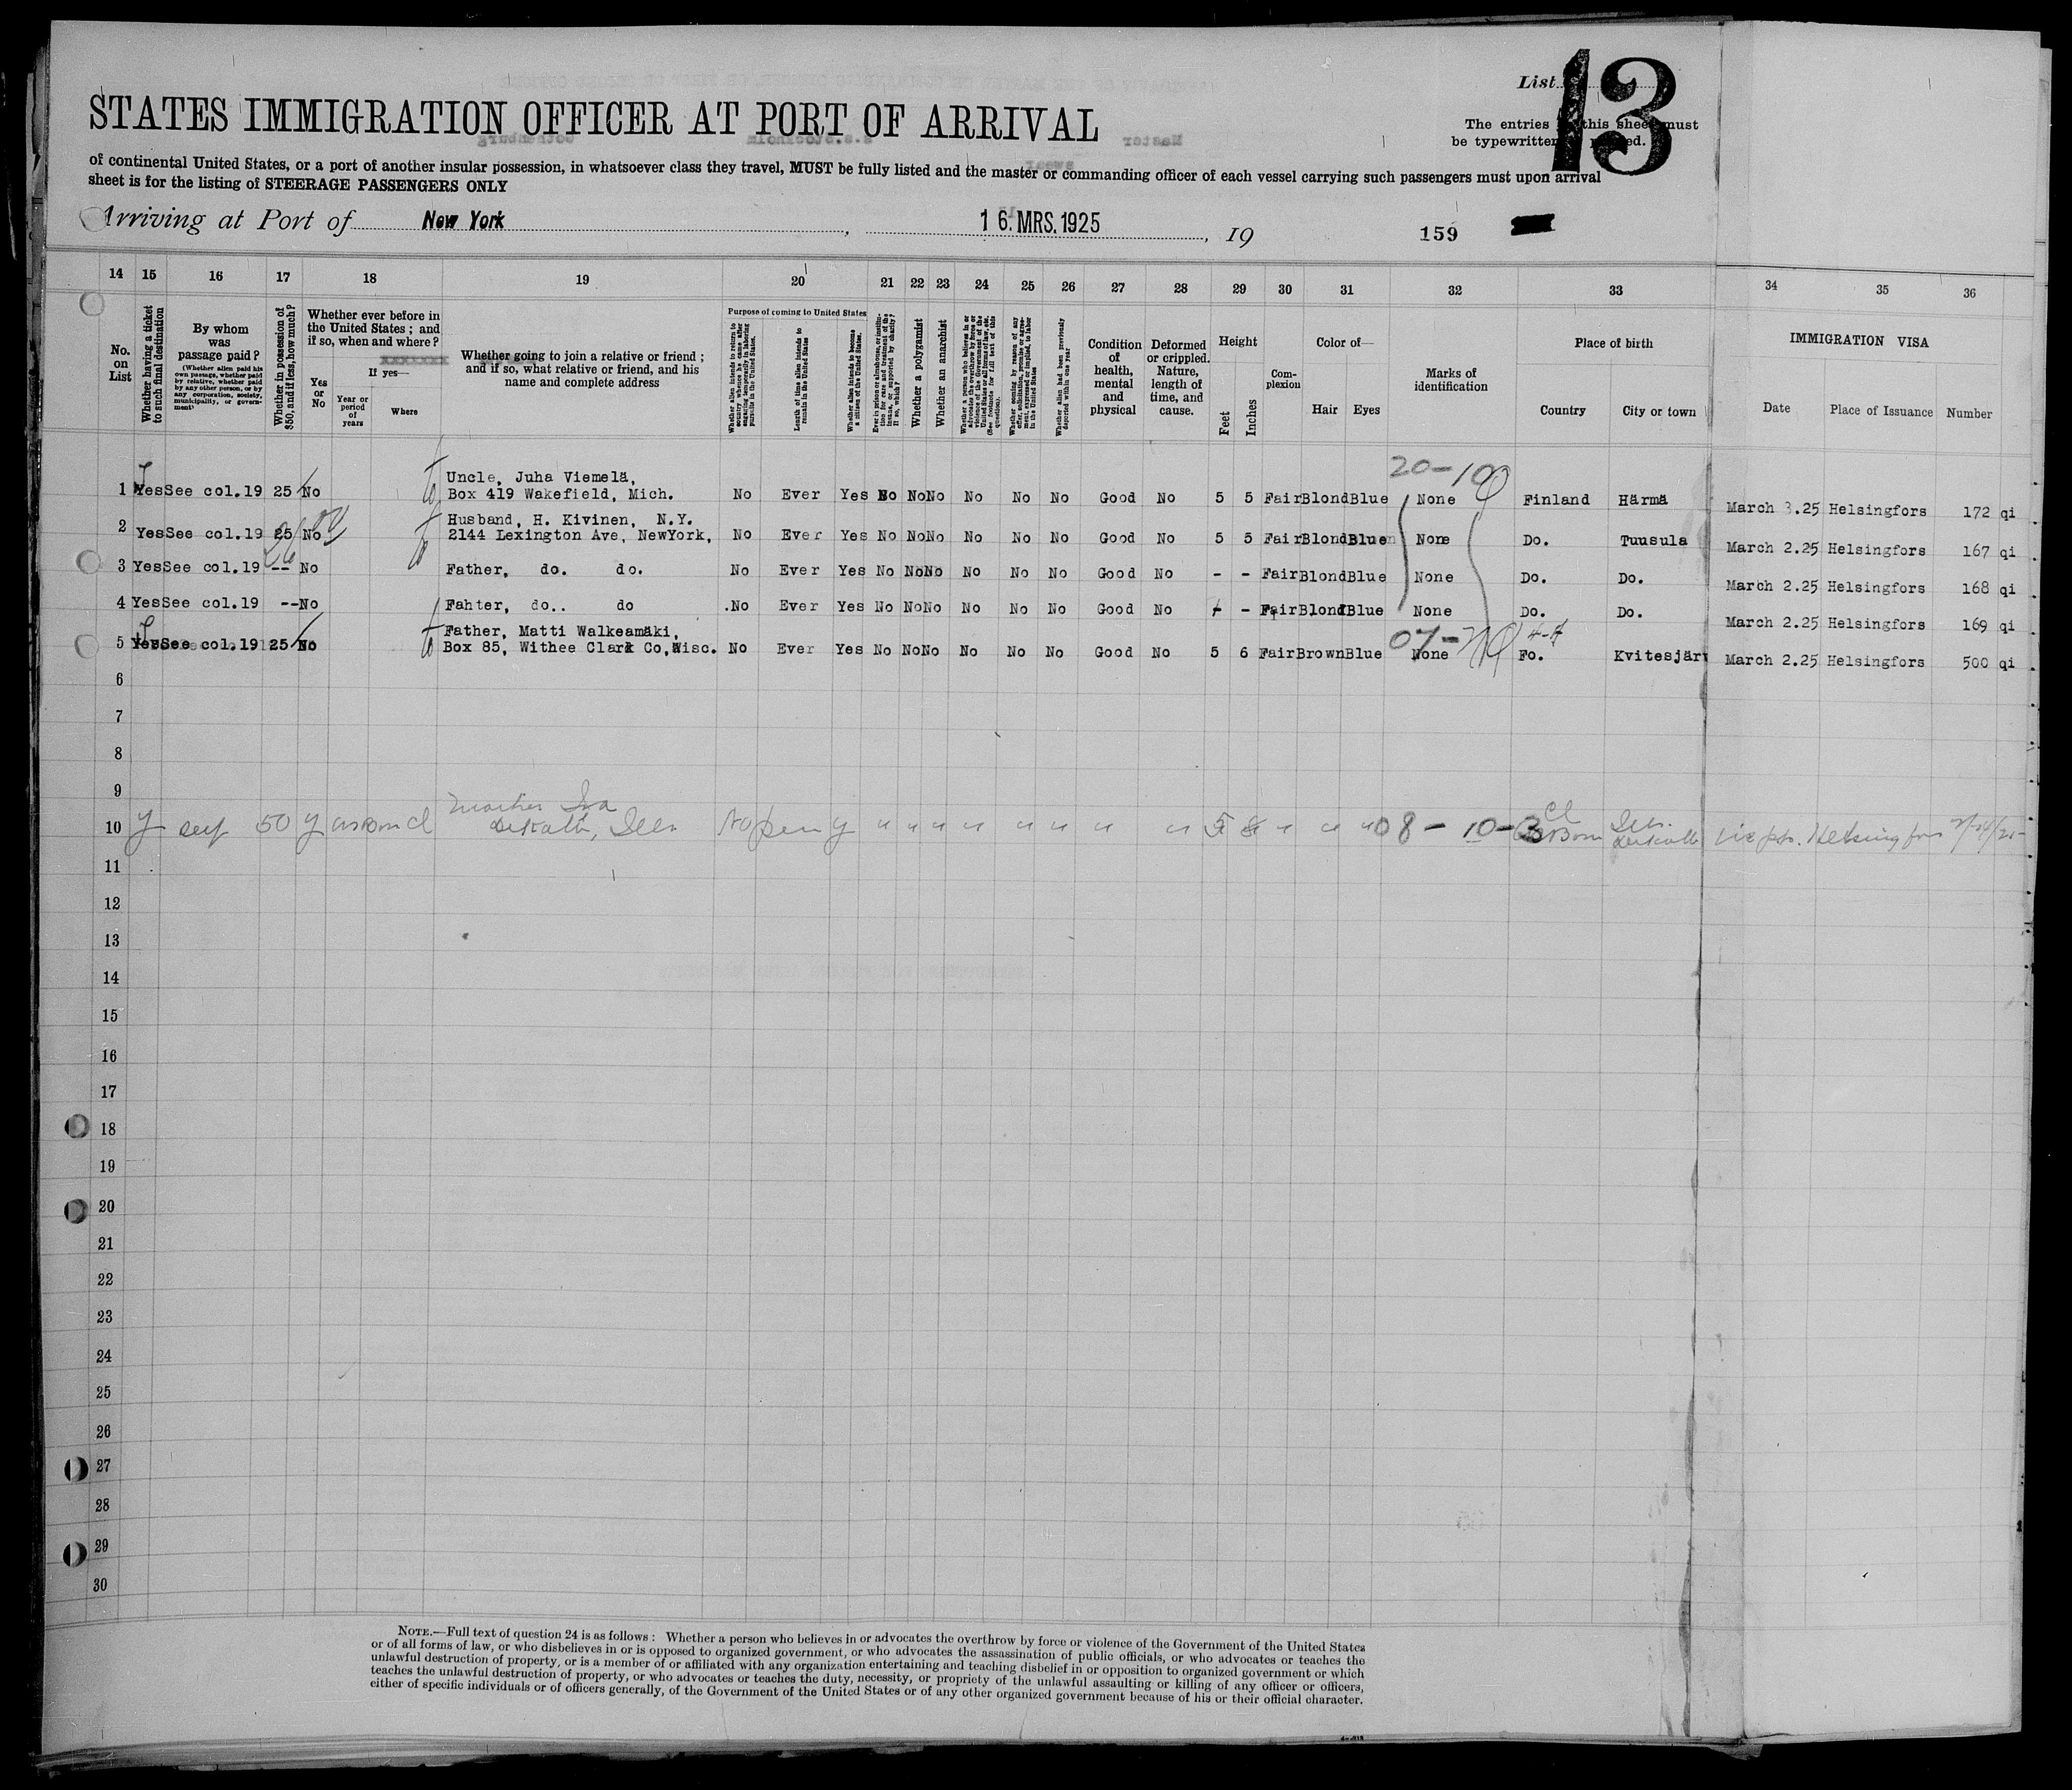 List 13
The entries this sheet must
be typewritten
STATES IMMIGRATION OFFICER AT PORT OF ARRIVAL
of continental United States, or a port of another insular possession, in whatsoever class they travel, MUST be fully listed and the master or commanding officer of each vessel carrying such passengers must upon arrival
sheet is for the listing of STEERAGE PASSENGERS ONLY
Arriving at Port of New York, 16. MRS. 1925, 19 159
14 15 16 17 18 19 20 21 22 23 24 25 26 27 28 29 30 31 32 33 34 35 36
No. on List
Whether having a ticket to such final destination
By whom was passage paid?
(Whether alien paid his own passage, whether paid by relative, whether paid by any other person, or by any corporation, society, municipality, or government)
Whether in possession of $50, and if less, how much?
Whether ever before in the United States; and if so, when and where?
Yes or No
If yes—
Year or period of years
Where
Whether going to join a relative or friend; and if so, what relative or friend, and his name and complete address
Purpose of coming to United States
Whether alien intends to return to country whence he came after engaging temporarily in laboring pursuits in the United States.
Length of time alien intends to remain in the United States
Whether alien intends to become a citizen of the United States.
Ever in prison or almshouse, or institution for care and treatment of the insane, or supported by charity? If so, which?
Whether a polygamist
Whether an anarchist
Whether a person who believes in or advocates the overthrow by force or violence of the Government of the United States or all forms of law, etc. (See footnote for full text of this question).
Whether coming by reason of any offer, solicitation, promise or agreement, expressed or implied, to labor in the United States
Whether alien had been previously deported within one year
Condition of health, mental and physical
Deformed or crippled. Nature, length of time, and cause.
Height
Feet
Inches
Complexion
Color of—
Hair
Eyes
Marks of identification
Place of birth
Country
City or town
IMMIGRATION VISA
Date
Place of Issuance
Number
20-10
Uncle, Juha Viemelä,
1 Yes See col.19 25 No Box 419 Wakefield, Mich. No Ever Yes No No No No No No Good No 5 5 Fair Blond Blue None Finland Härmä March 3.25 Helsingfors 172 qi
Husband, H. Kivinen, N.Y.
2 Yes See col.19 25 No 2144 Lexington Ave, NewYork, No Ever Yes No No No No No No Good No 5 5 Fair Blond Blue None Do. Tuusula March 2.25 Helsingfors 167 qi
3 Yes See col.19 -- No Father, do. do. No Ever Yes No No No No No No Good No - - Fair Blond Blue None Do. Do. March 2.25 Helsingfors 168 qi
4 Yes See col.19 -- No Fahter, do.. do .No Ever Yes No No No No No No Good No - - Fair Blond Blue None Do. Do. March 2.25 Helsingfors 169 qi
Father, Matti Walkeamäki, 07- 4-4
5 Yes See col.19 25 No Box 85, Withee Clark Co, Wisc. No Ever Yes No No No No No No Good No 5 6 Fair Brown Blue None Fo. Kvitesjärv March 2.25 Helsingfors 500 qi
6
7
8
9
mother Ida
10 y self 50 y DeKalb, Ills. No perm y " " " " " " " " 5 8 " " " 08-10-3 Born DeKalb Helsingfors
11
12
13
14
15
16
17
18
19
20
21
22
23
24
25
26
27
28
29
30
NOTE.—Full text of question 24 is as follows: Whether a person who believes in or advocates the overthrow by force or violence of the Government of the United States
or of all forms of law, or who disbelieves in or is opposed to organized government, or who advocates the assassination of public officials, or who advocates or teaches the
unlawful destruction of property, or is a member of or affiliated with any organization entertaining and teaching disbelief in or opposition to organized government or which
teaches the unlawful destruction of property, or who advocates or teaches the duty, necessity, or propriety of the unlawful assaulting or killing of any officer or officers,
either of specific individuals or of officers generally, of the Government of the United States or of any other organized government because of his or their official character.